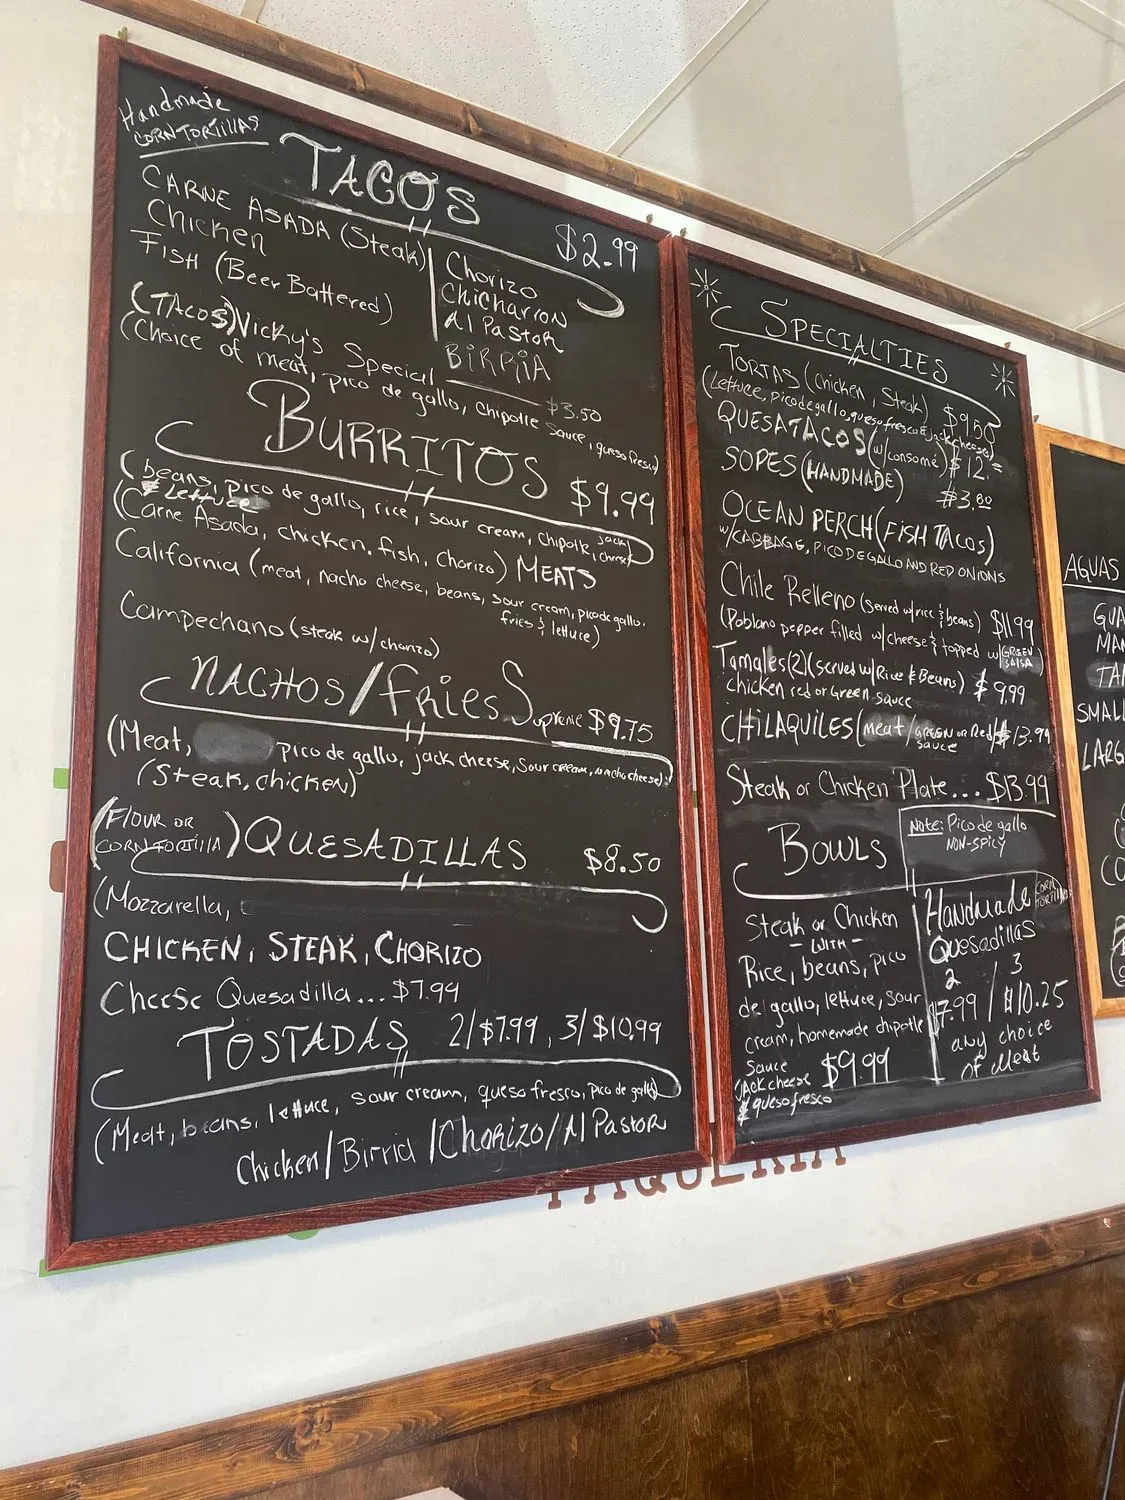 Handmade
CORN TORTILLAS
TACOS
$2.99
CARNE ASADA (Steak)
Chicken
Fish (Beer Battered)
Chorizo
Chicharron
Al Pastor
BIRRIA
(TACOS) Vicky's Special $3.50
(Choice of meat, pico de gallo, Chipotle Sauce, queso fresco)
BURRITOS $9.99
(beans, pico de gallo, rice, sour cream, chipotle, jack cheese)
& Lettuce
(Carne Asada, chicken, fish, Chorizo) MEATS
California (meat, nacho cheese, beans, sour cream, pico de gallo,
fries & lettuce)
Campechano (steak w/ chorizo)
NACHOS/fries Supreme $9.75
(Meat, pico de gallo, jack cheese, Sour cream, nacho cheese)
(Steak, chicken)
(FLOUR OR
CORN TORTILLA) QUESADILLAS $8.50
(Mozzarella,
CHICKEN, STEAK, CHORIZO
Cheese Quesadilla... $7.99
TOSTADAS 2/$7.99, 3/$10.99
(Meat, beans, lettuce, sour cream, queso fresco, pico de gallo)
Chicken/Birria/Chorizo/Al Pastor
SPECIALTIES
TORTAS (Chicken, Steak) $9.50
(Lettuce, pico de gallo, queso fresco & jack cheese)
QUESATACOS (w/consomé) $12.=
SOPES (HANDMADE) $3.80
OCEAN PERCH (FISH TACOS)
w/CABBAGE, PICO DE GALLO AND RED ONIONS
Chile Relleno (served w/rice & beans) $11.99
(Poblano pepper filled w/cheese & topped w/ GREEN SALSA
Tamales (2) (served w/Rice & Beans) $9.99
chicken red or Green sauce
CHILAQUILES (meat/GREEN OR Red sauce) $13.99
Steak or Chicken Plate... $13.99
Note: Pico de gallo
NON-SPICY
BOWLS
Steak or Chicken
- WITH -
Rice, beans, pico
de gallo, lettuce, sour
cream, homemade chipotle
sauce $9.99
JACK cheese
& queso fresco
Handmade CORN TORTILLAS
Quesadillas
2 / 3
$7.99 / $10.25
any choice
of Meat
AGUAS
GUA
MAN
TA
SMALL
LARG
CO
TAQUERIA